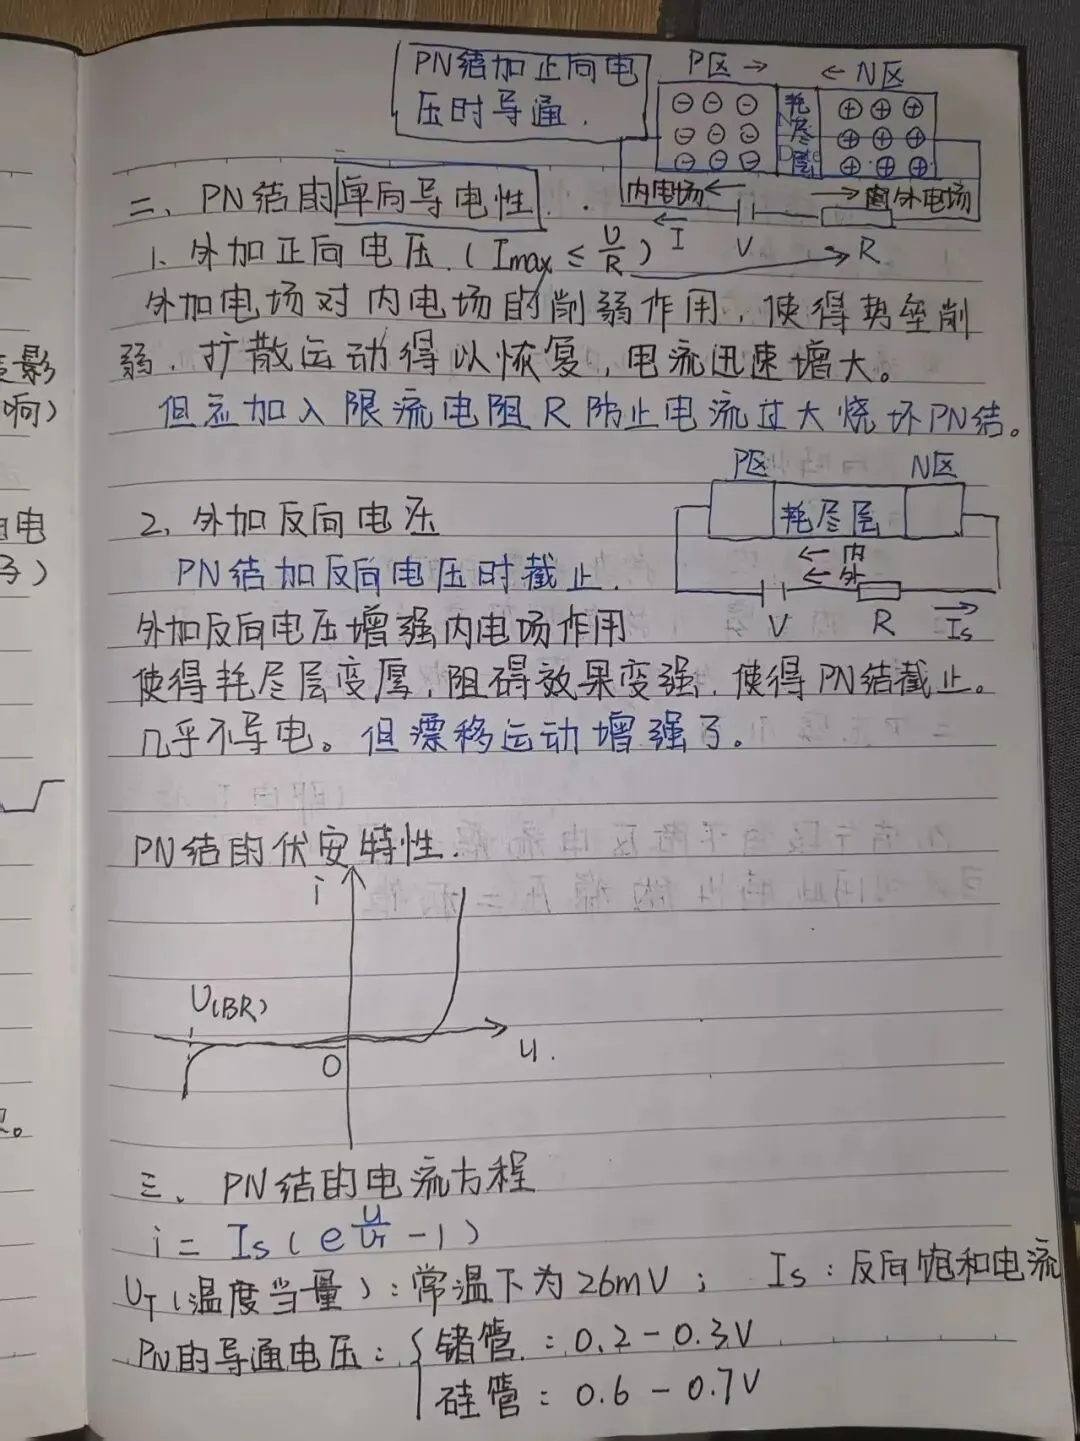 PN结加正向电
压时导通.
P区→ ←N区
⊖⊖⊖ 耗 ⊕⊕⊕
⊖⊖⊖ 尽 ⊕⊕⊕
⊖⊖⊖ 层 ⊕⊕⊕
内电场← →外电场
←I V R
二、PN结的单向导电性.
1、外加正向电压.(Imax ≤ U/R)
外加电场对内电场的削弱作用,使得势垒削
弱.扩散运动得以恢复,电流迅速增大。
但应加入限流电阻R防止电流过大烧坏PN结。
P区 N区
耗尽层
←内
←外
V R Is
2、外加反向电压
PN结加反向电压时截止.
外加反向电压增强内电场作用
使得耗尽层变厚,阻碍效果变强,使得PN结截止。
几乎不导电。但漂移运动增强了。
PN结的伏安特性.
i
U(BR)
0
u.
三、PN结的电流方程
i = Is(e^(u/UT) -1)
UT(温度当量):常温下为26mV; Is:反向饱和电流
PN的导通电压:{锗管:0.2-0.3V
硅管:0.6-0.7V
影
响)
电
)